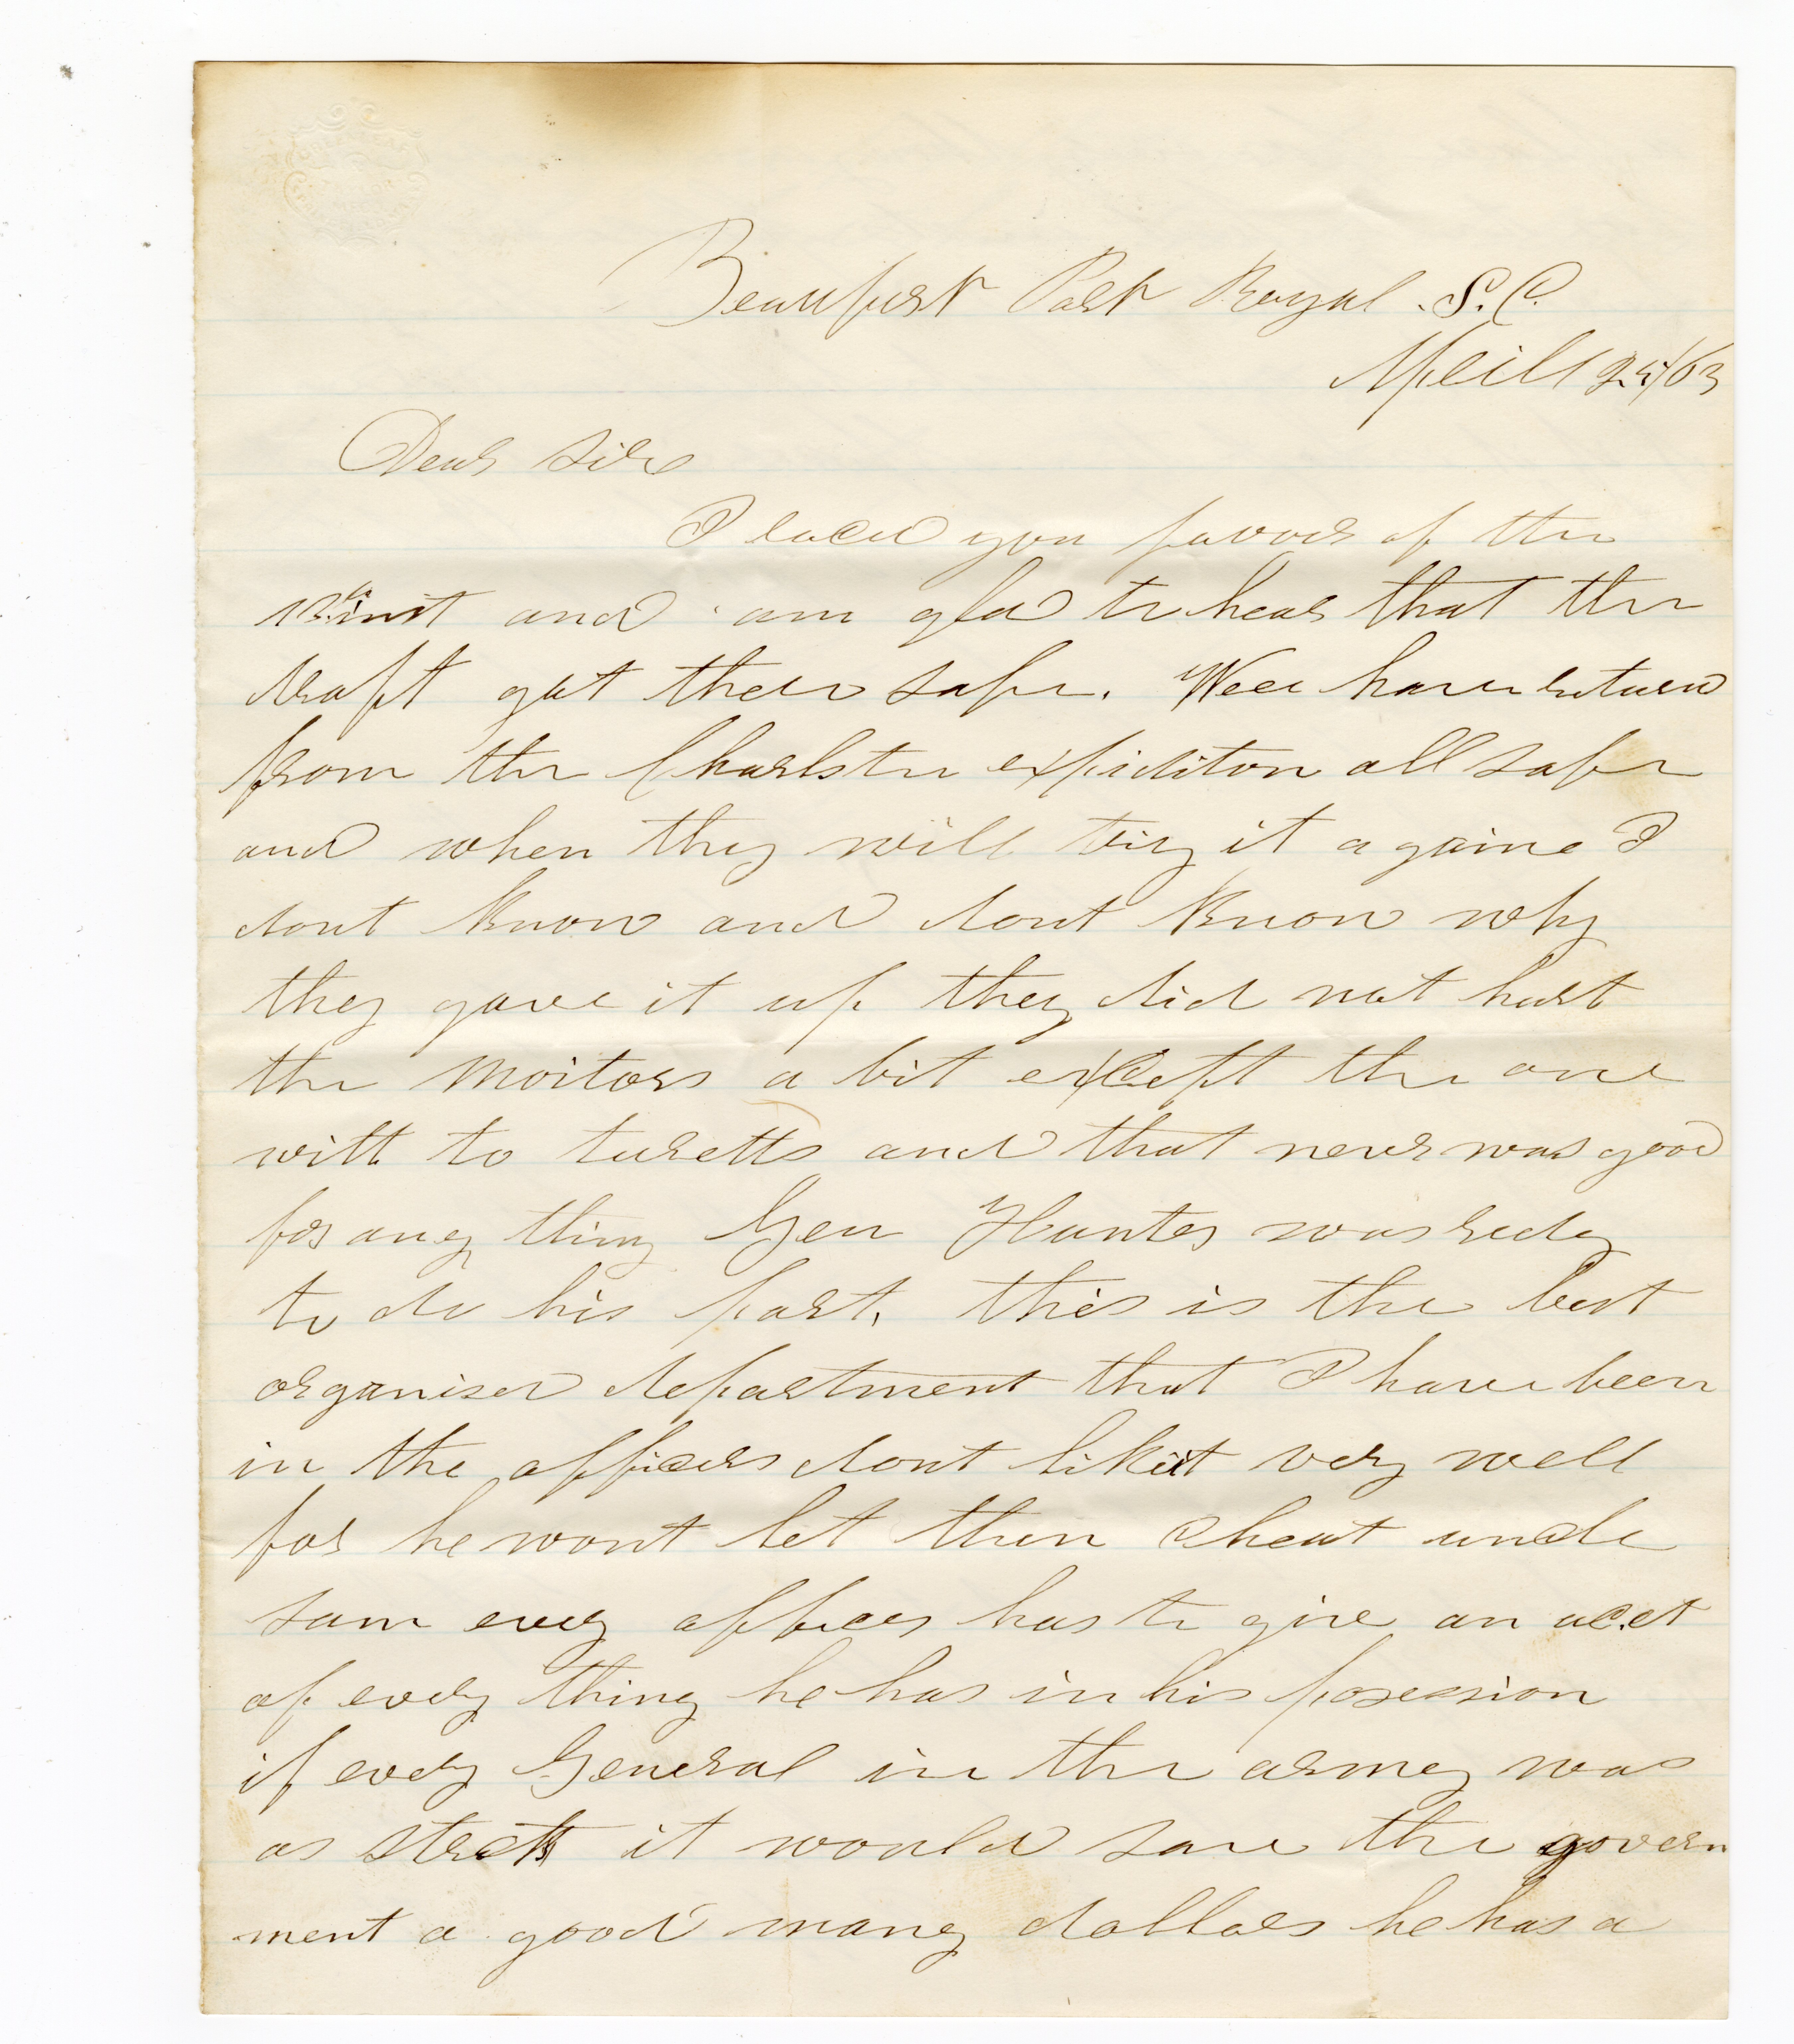 Beaufort Port Royal S.C.
Aprill 25/63
Dear Sire
I recd you favor of the
inst and am glad to hear that the
draft got there safe. Wee have return
from the Charlston expiditon all safe
and when they will try it againe I
dont know and dont know why
they gave it up they did not hurt
the Moitors a bit except the one
with to turetts and that never was good
for any thing Gen Hunter was redy
to do his part, this is the best
organised department that I have been
in the officers dont like it very well
for he wont let them cheat uncle
sam every officer has to give an acct
of every thing he has in his posession
if every General in the army was
as strickt it would save the govern
ment a good many dollars he has a